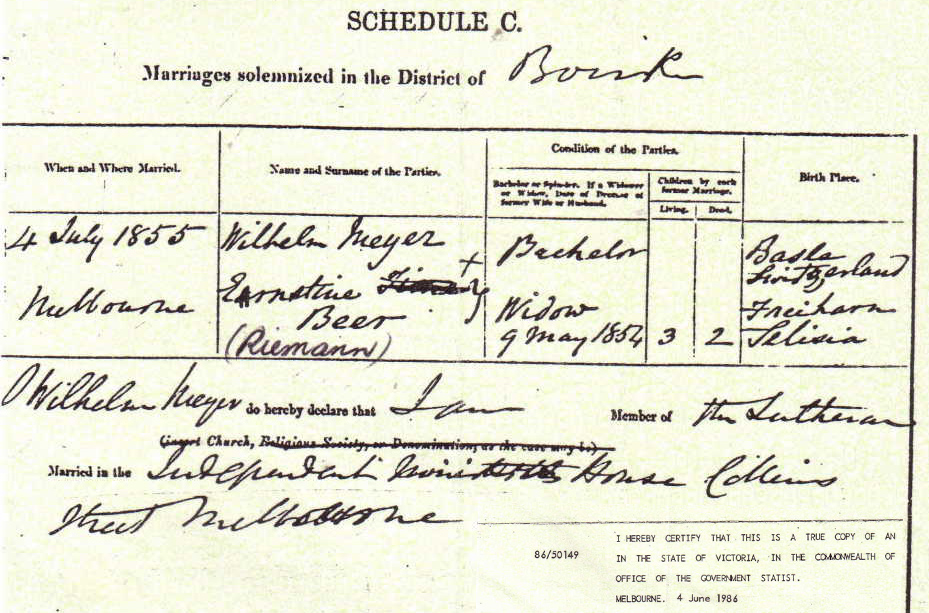 SCHEDULE C.
Marriages solemnized in the District of Bourk
When and Where Married.
Name and Surname of the Parties.
Condition of the Parties.
Bachelor or Spinster. If a Widower or Widow, Date of Decease of former Wife or Husband.
Children by each former Marriage.
Living.
Dead.
Birth Place.
4 July 1855
Wilhelm Meyer
Bachelor
Basle
Switzerland
Melbourne
Ernstine
Beer
(Riemann)
Widow
9 May 1854
3
2
Freiharn
Silisia
I Wilhelm Meyer do hereby declare that I am Member of the Lutheran
(insert Church, Religious Society, or Denomination, as the case may be)
Married in the Independent House Collins
Street Melbourne
86/50149
I HEREBY CERTIFY THAT THIS IS A TRUE COPY OF AN
IN THE STATE OF VICTORIA, IN THE COMMONWEALTH OF
OFFICE OF THE GOVERNMENT STATIST.
MELBOURNE. 4 June 1986